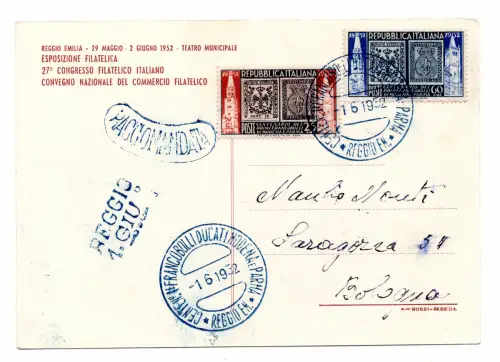 REGGIO EMILIA - 29 MAGGIO - 2 GIUGNO 1952 - TEATRO MUNICIPALE
ESPOSIZIONE FILATELICA
27° CONGRESSO FILATELICO ITALIANO
CONVEGNO NAZIONALE DEL COMMERCIO FILATELICO
REPUBBLICA ITALIANA
POSTE CENTENARIO DEI PRIMI FRANCOBOLLI DI MODENA E PARMA
REPUBBLICA ITALIANA
1952
60
RACCOMANDATA
REGGIO
1. GIU
-1 6 1952
REGGIO EM.
CENTEN° FRANCOBOLLI DUCATI MODENA E PARMA
-1 6 1952
REGGIO EM.
Saragozza 51
Bologna